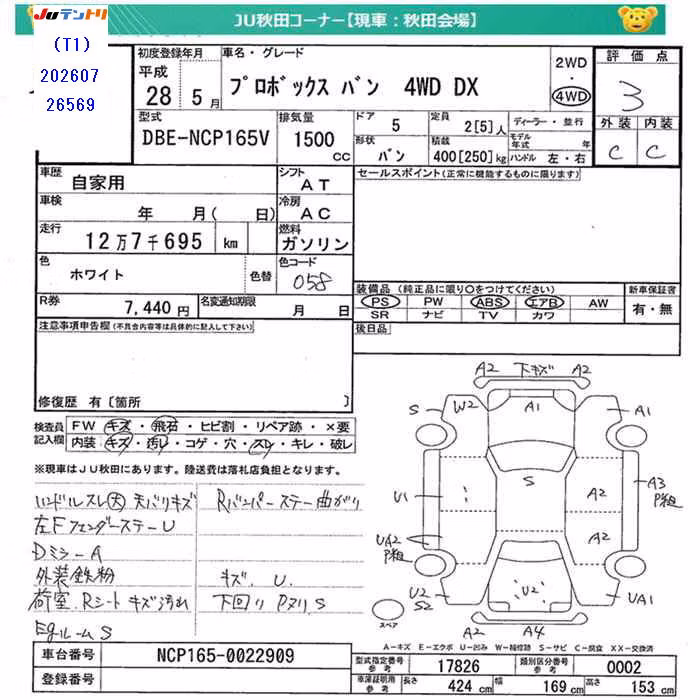 JUテントリ
JU秋田コーナー【現車：秋田会場】
(T1)
202607
26569
初度登録年月
平成
28 5 月
車名・グレード
プロボックス バン 4WD DX
2WD
・
4WD
評価点
3
外装 内装
C C
型式
DBE-NCP165V
排気量
1500 cc
ドア 5
形状 バン
定員 2[5]人
積載 400[250]kg
ディーラー・並行
モデル年式 年
ハンドル 左・右
車歴
自家用
シフト
AT
車検
年 月( 日)
冷房
AC
走行
12万7千695 km
燃料
ガソリン
色
ホワイト
色替
色コード
058
R券
7,440円
名変通知期限
月 日
セールスポイント(正常に機能するものに限ります)
装備品 (純正品に限り○をつけてください)
PS PW ABS エアB AW
SR ナビ TV カワ
新車保証書
有・無
後日品
注意事項申告欄(不具合内容等は具体的に記入して下さい)
修復歴 有〔箇所 〕
検査員記入欄
FW キズ・飛石・ヒビ割・リペア跡・×要
内装 キズ・汚レ・コゲ・穴・スレ・キレ・破レ
※現車はJU秋田にあります。陸送費は落札店負担となります。
ハンドルスレ大 天バリキズ
左Fフェンダーステー U
Dミラー A
外装鉄粉
荷室、Rシート キズ汚れ
Egルーム S
Rバンパーステー曲がり
キズ、U.
下回り Pヌリ、S
A2 下キズ A2
S W2 A1 A1
S
U1 A2 A3 P粗
UA2 P粗 A2
U2 S2 U2 UA1
A2 A4
スペア
A－キズ E－エクボ U－凹み W－補修跡 S－サビ C－腐食 XX－交換済
車台番号
NCP165-0022909
登録番号
型式指定番号 参考
17826
類別区分番号 参考
0002
車庫証明用 参考
長さ 424 cm
幅 169 cm
高さ 153 cm